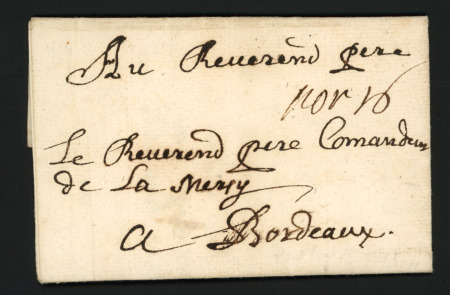 Au Reverend pere
Le Reverend pere Comandeur
de La Mersy
a Bordeaux.